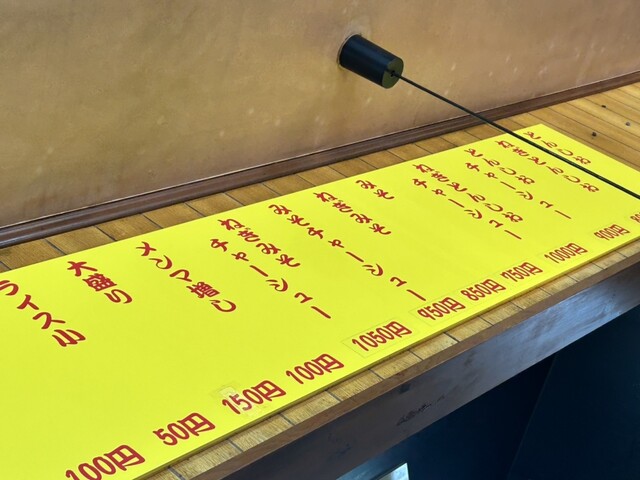 とんしお
ねぎとんしお
とんしお
チャーシュー
ねぎとんしお
チャーシュー
みそ
ねぎみそ
みそチャーシュー
ねぎみそ
チャーシュー
メンマ増し
大盛り
ライス小
900円
1000円
750円
850円
950円
1050円
100円
150円
50円
100円